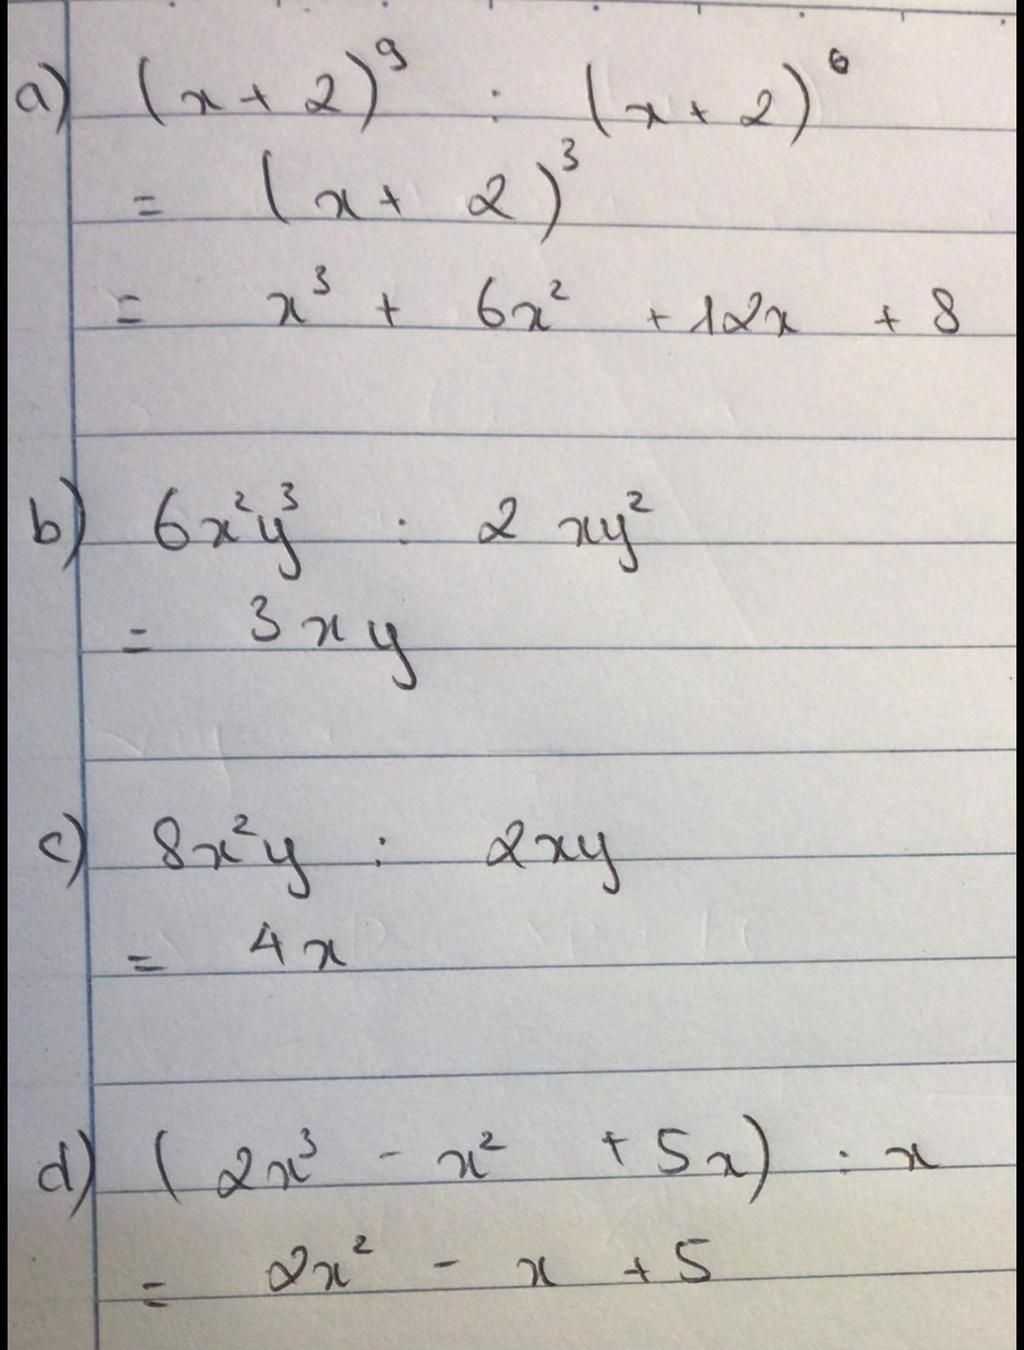 a) (x + 2)⁹ : (x + 2)⁶
= (x + 2)³
= x³ + 6x² + 12x + 8
b) 6x²y³ : 2 xy²
= 3xy
c) 8x²y : 2xy
= 4x
d) (2x³ - x² + 5x) : x
= 2x² - x + 5